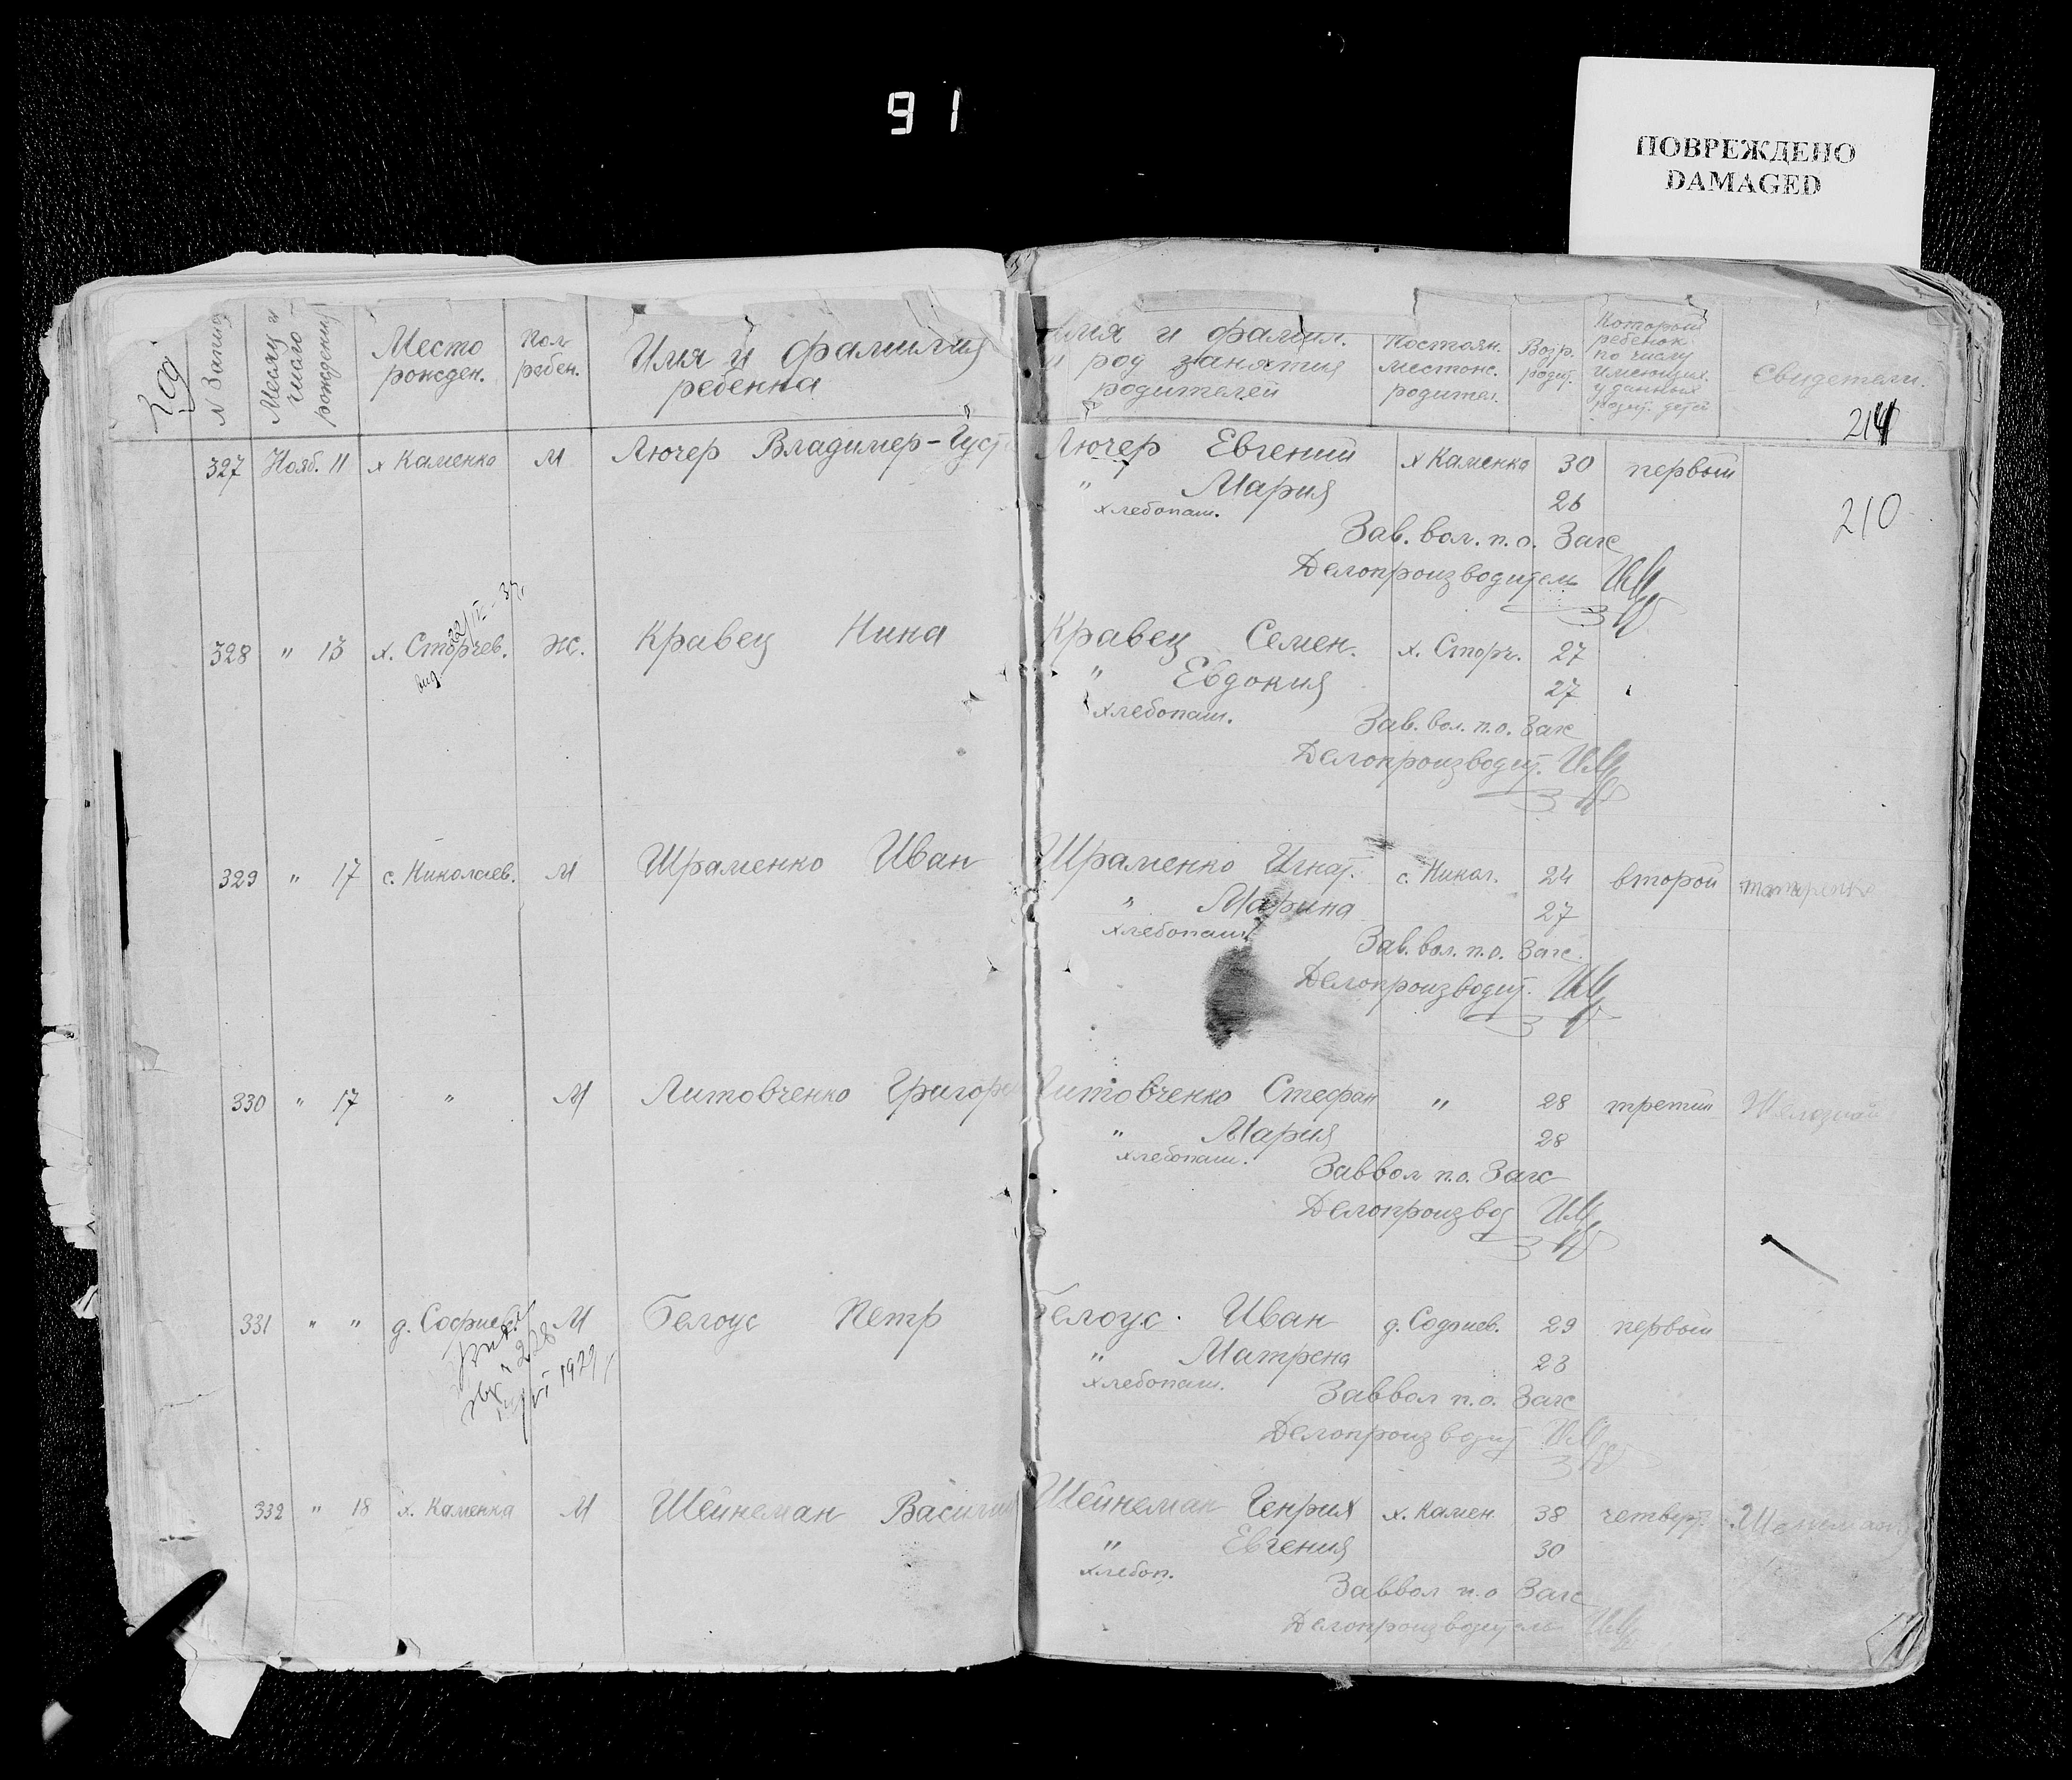 91
ПОВРЕЖДЕНО
DAMAGED
Год
N Записи
Месяц и число рождения
Место рожден.
Пол ребен.
Имя и фамилия ребенка
Имя и фамил. и род занятия родителей
Постоян. местож. родител.
Возр. родит.
Который ребенок по числу имеющих. у данных родит. детей
Свидетели.
214
210
327 Нояб. 11 х Каменка М Лючер Владимер-Густ Лючер Евгений х Каменка 30 первый
" Мария 26
хлебопаш.
Зав. вол. п. о. Загс
Делопроизводитель
328 " 13 х. Сторчев. Ж. Кравец Нина Кравец Семен. х. Сторч. 27
22/IV-37
" Евдокия 27
хлебопаш.
Зав. вол. п. о. Загс
Делопроизводит.
329 " 17 с. Николаев. М Шраменко Иван Шраменко Игнат. с. Никол. 24 второй
" Марина 27
хлебопаш.
Зав. вол. п. о. Загс.
Делопроизводит.
330 " 17 " М Литовченко Григорий Литовченко Стефан " 28 третий
" Мария 28
хлебопаш.
Заввол п. о. Загс
Делопроизвод
331 " " д. Софиев. М Белоус Петр Белоус. Иван д. Софиев. 29 первый
228
VI 1929
" Матрена 23
хлебопаш.
Заввол п. о. Загс
Делопроизводит
332 " 18 х. Каменка М Шейнеман Василий Шейнеман Генрих х. Камен. 38 четверт.
" Евгения 30
хлебоп.
Заввол п. о Загс
Делопроизводитель